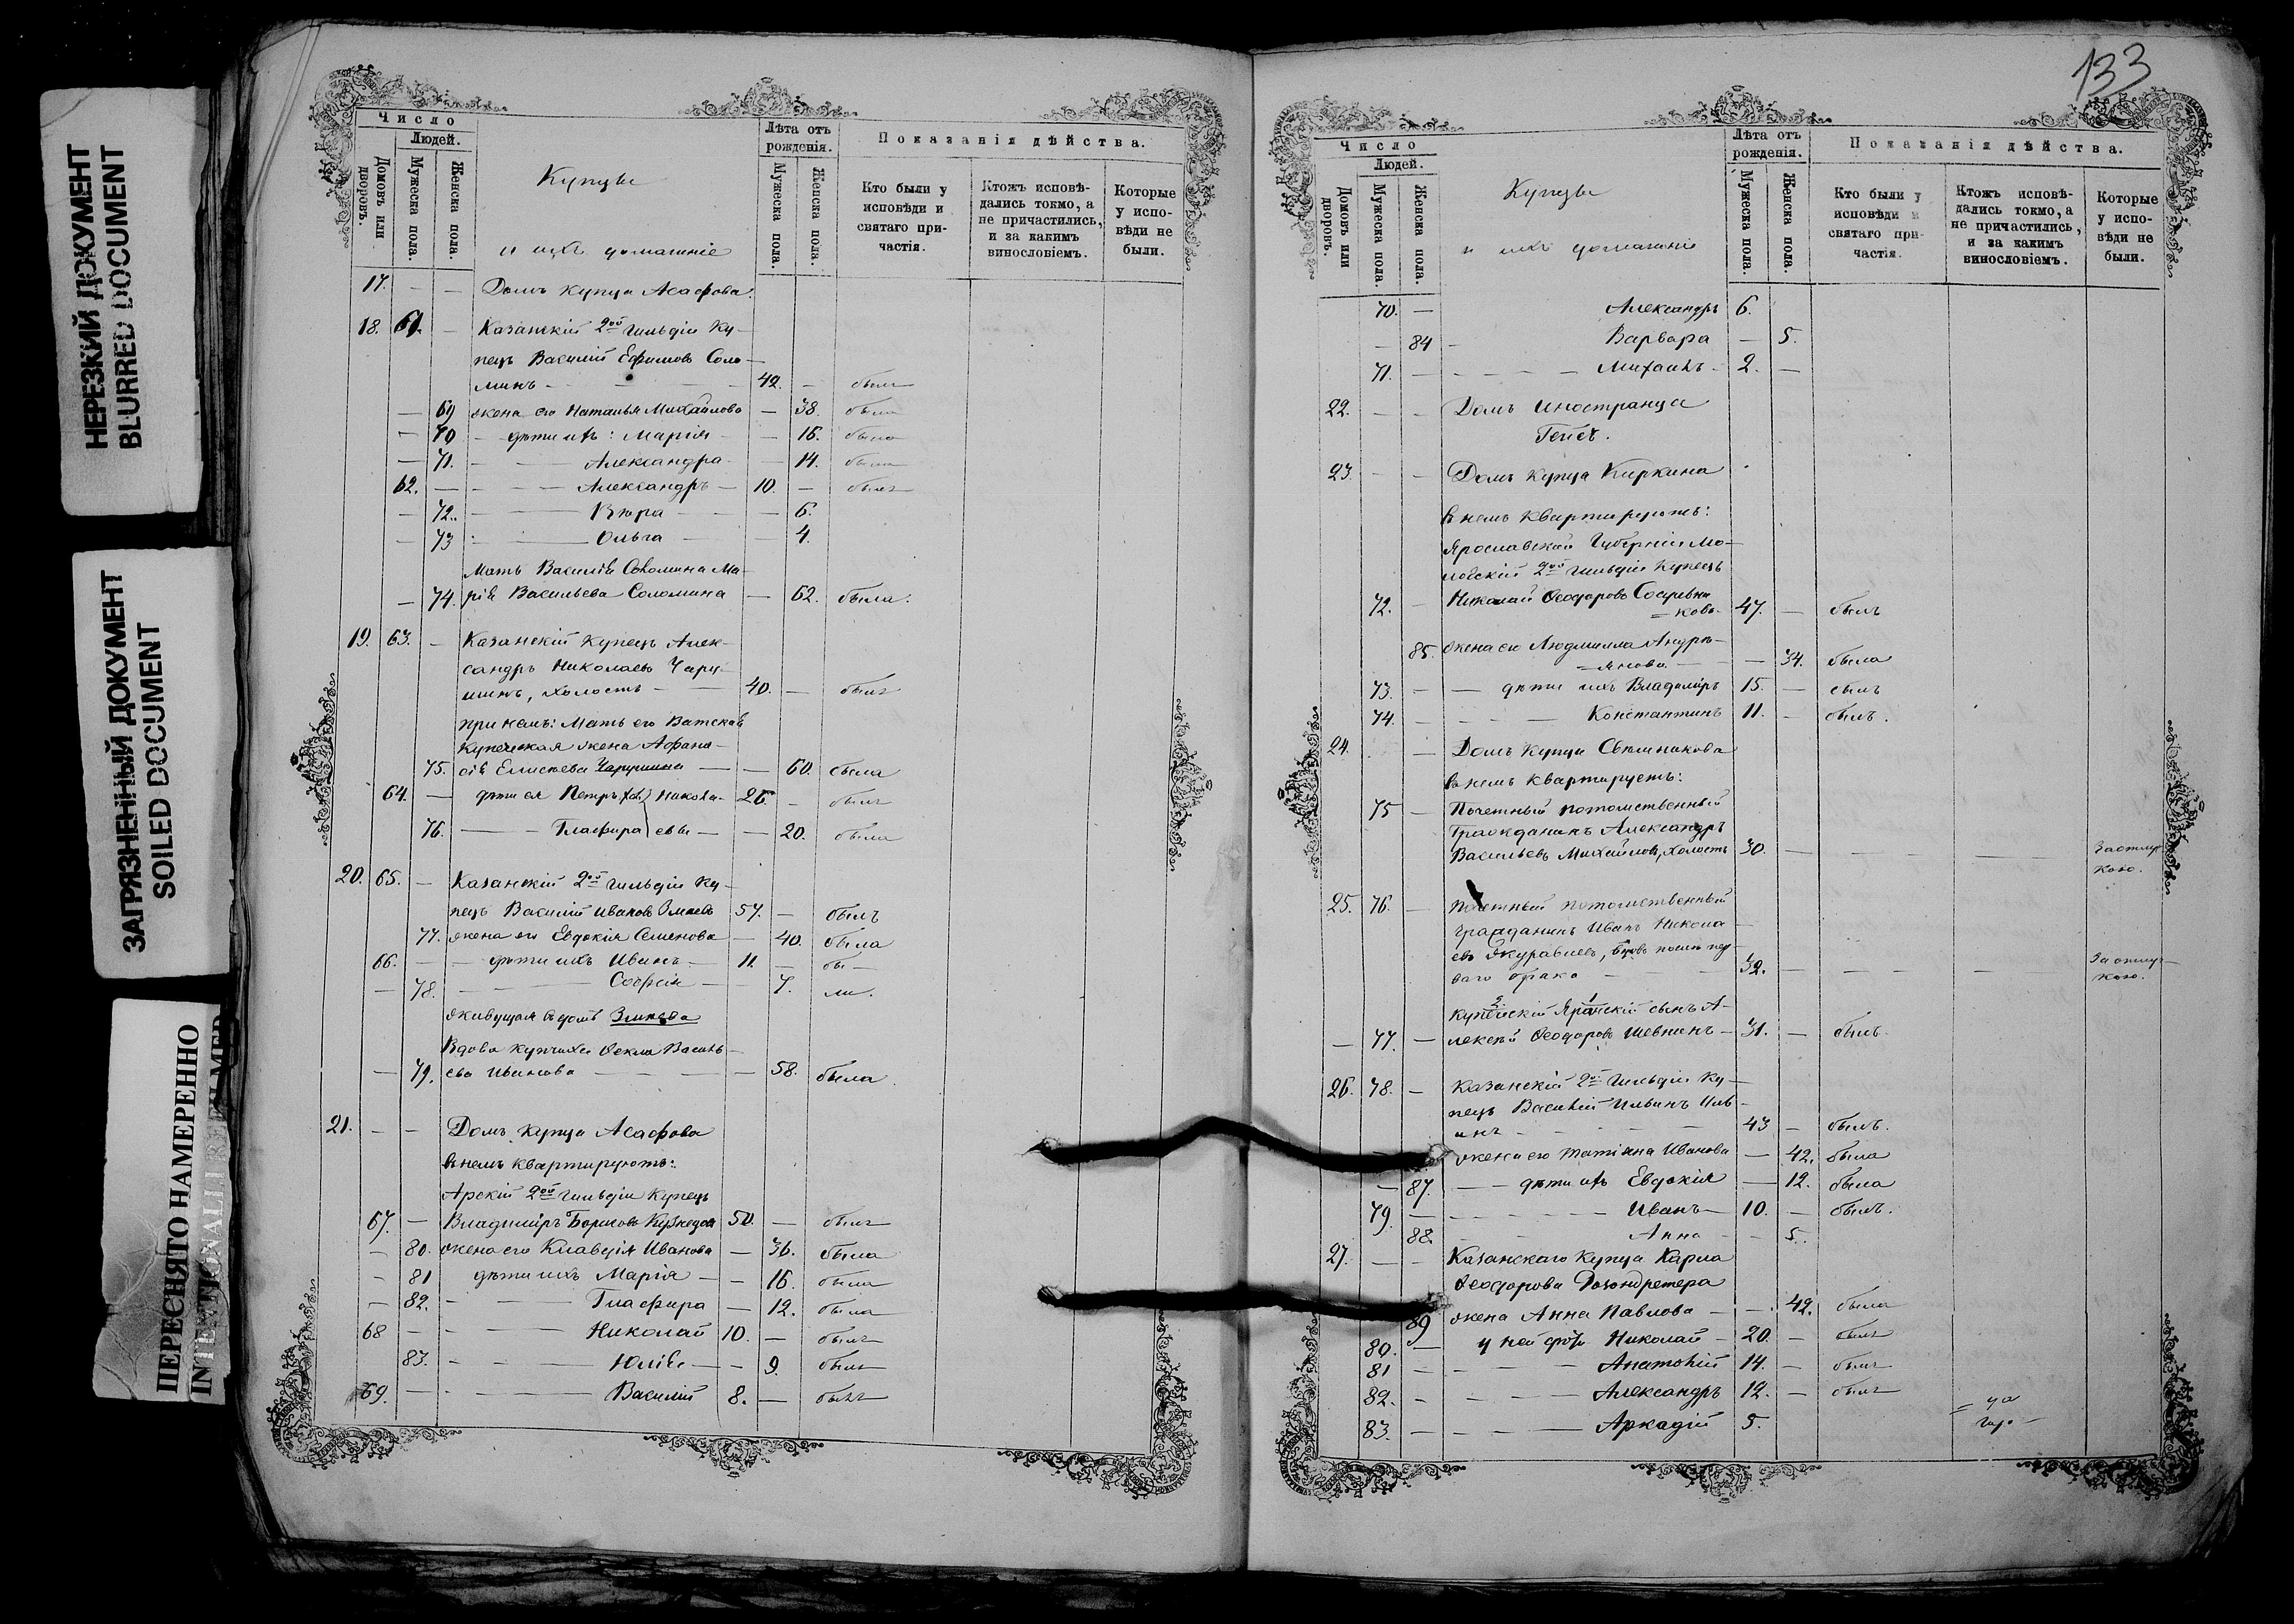 НЕРЕЗКИЙ ДОКУМЕНТ
BLURRED DOCUMENT
ЗАГРЯЗНЕННЫЙ ДОКУМЕНТ
SOILED DOCUMENT
ПЕРЕСНЯТО НАМЕРЕННО
INTENTIONALLY REFILMED
Число
Людей.
Домовъ или дворовъ.
Мужеска пола.
Женска пола.
Купцы
и ихъ домашніе
Лѣта отъ рожденія.
Мужеска пола.
Женска пола.
Показанія дѣйства.
Кто были у исповѣди и святаго причастія.
Ктожъ исповѣдались токмо, а не причастились, и за какимъ винословіемъ.
Которые у исповѣди не были.
17. – – Домъ купца Асафова.
18. 61. – Казанскій 2ой гильдіи Ку-
пецъ Василій Ефимовъ Соло-
минъ – 42. – былъ
– 69 жена его Наталья Михайлова – 38. была
– 70 – дѣти ихъ: Марія – 16. была
– 71. – Александра – 14. была
62. – Александръ – 10. – былъ
– 72. – Вѣра – 6.
– 73 – Ольга – 4.
Мать Василія Соломина Ма-
– 74. рія Васильева Соломина – 62. была.
19. 63. – Казанскій купецъ Алек-
сандръ Николаевъ Чару-
шинъ, холостъ – 40. – былъ
при немъ: Мать его Вятская
купеческая жена Афана-
75. сія Елисѣева Чарушина – 60. была
64. – дѣти ея Петръ хол. Никола- 26. – былъ
76. – Глафира евы – 20. была
20. 65. – Казанскій 2ой гильдіи Ку-
пецъ Василій Ивановъ Змѣевъ 57. – былъ
77. жена его Евдокія Семенова – 40. была
66. – дѣти ихъ Иванъ – 11. – бы-
– 78. – Софія – 7. ли.
живущая въ домѣ Змѣева
Вдова купчиха Ѳекла Василь-
– 79. ева Иванова – 58. была.
21. – – Домъ купца Асафова
въ немъ квартируютъ:
Арскій 2ой гильдіи Купецъ
67. – Владиміръ Борисовъ 50. – былъ
– 80. жена его Клавдія Иванова – 36. была
– 81 дѣти ихъ Марія – 16. была
– 82. – Глафира – 12. была
68 – Николай 10. – былъ
83. – Юлія – 9. была
69. – Василій 8. – былъ
133
Число
Людей.
Домовъ или дворовъ.
Мужеска пола.
Женска пола.
Купцы
и ихъ домашніе
Лѣта отъ рожденія.
Мужеска пола.
Женска пола.
Показанія дѣйства.
Кто были у исповѣди и святаго причастія.
Ктожъ исповѣдались токмо, а не причастились, и за какимъ винословіемъ.
Которые у исповѣди не были.
70. – Александръ 6.
– 84 – Варвара – 5.
71. – Михаилъ – 2. –
22. – – Домъ Иностранца
Гейсъ.
23. – Домъ купца Киркина
въ немъ квартируютъ:
Ярославской Губерніи Мо-
ложскій 2ой гильдіи купецъ
72. – Николай Ѳеодоровъ
= ковъ – 47. – былъ
85. жена его Людмилла Андрѣ-
= янова – 34. была
73. – – дѣти ихъ Владиміръ 15. – былъ
74. – Константинъ 11. – былъ.
24. – Домъ купца Свѣшникова
въ немъ квартируетъ:
75 – Почетный потомственный
Гражданинъ Александръ
Васильевъ Михайловъ, холостъ 30. – – – За отлуч-
кою.
25. 76. – Почетный потомственный
Гражданинъ Иванъ Никола-
евъ Журавлевъ, вдовъ послѣ пер-
ваго брака – 32. – – – За отлуч-
кою.
Купеческій Яранскій сынъ А-
– 77. – лексѣй Ѳеодоровъ Шевнинъ – 31. – былъ
26. 78. – Казанскій 2ой гильдіи Ку-
пецъ Василій Ильинъ Иль-
инъ – 43 – былъ.
жена его Татіана Иванова – 42. была
– 87. – – дѣти ихъ Евдокія – 12. была
79. – Иванъ – 10. – былъ.
88. – Анна – 5.
27. – – Казанскаго купца Карла
Ѳеодорова
89 жена Анна Павлова – 42. была
80. – у ней дѣти Николай – 20. – былъ
81 – Анатолій 14. – былъ
82. – Александръ 12. – былъ
83. – Аркадій 5.